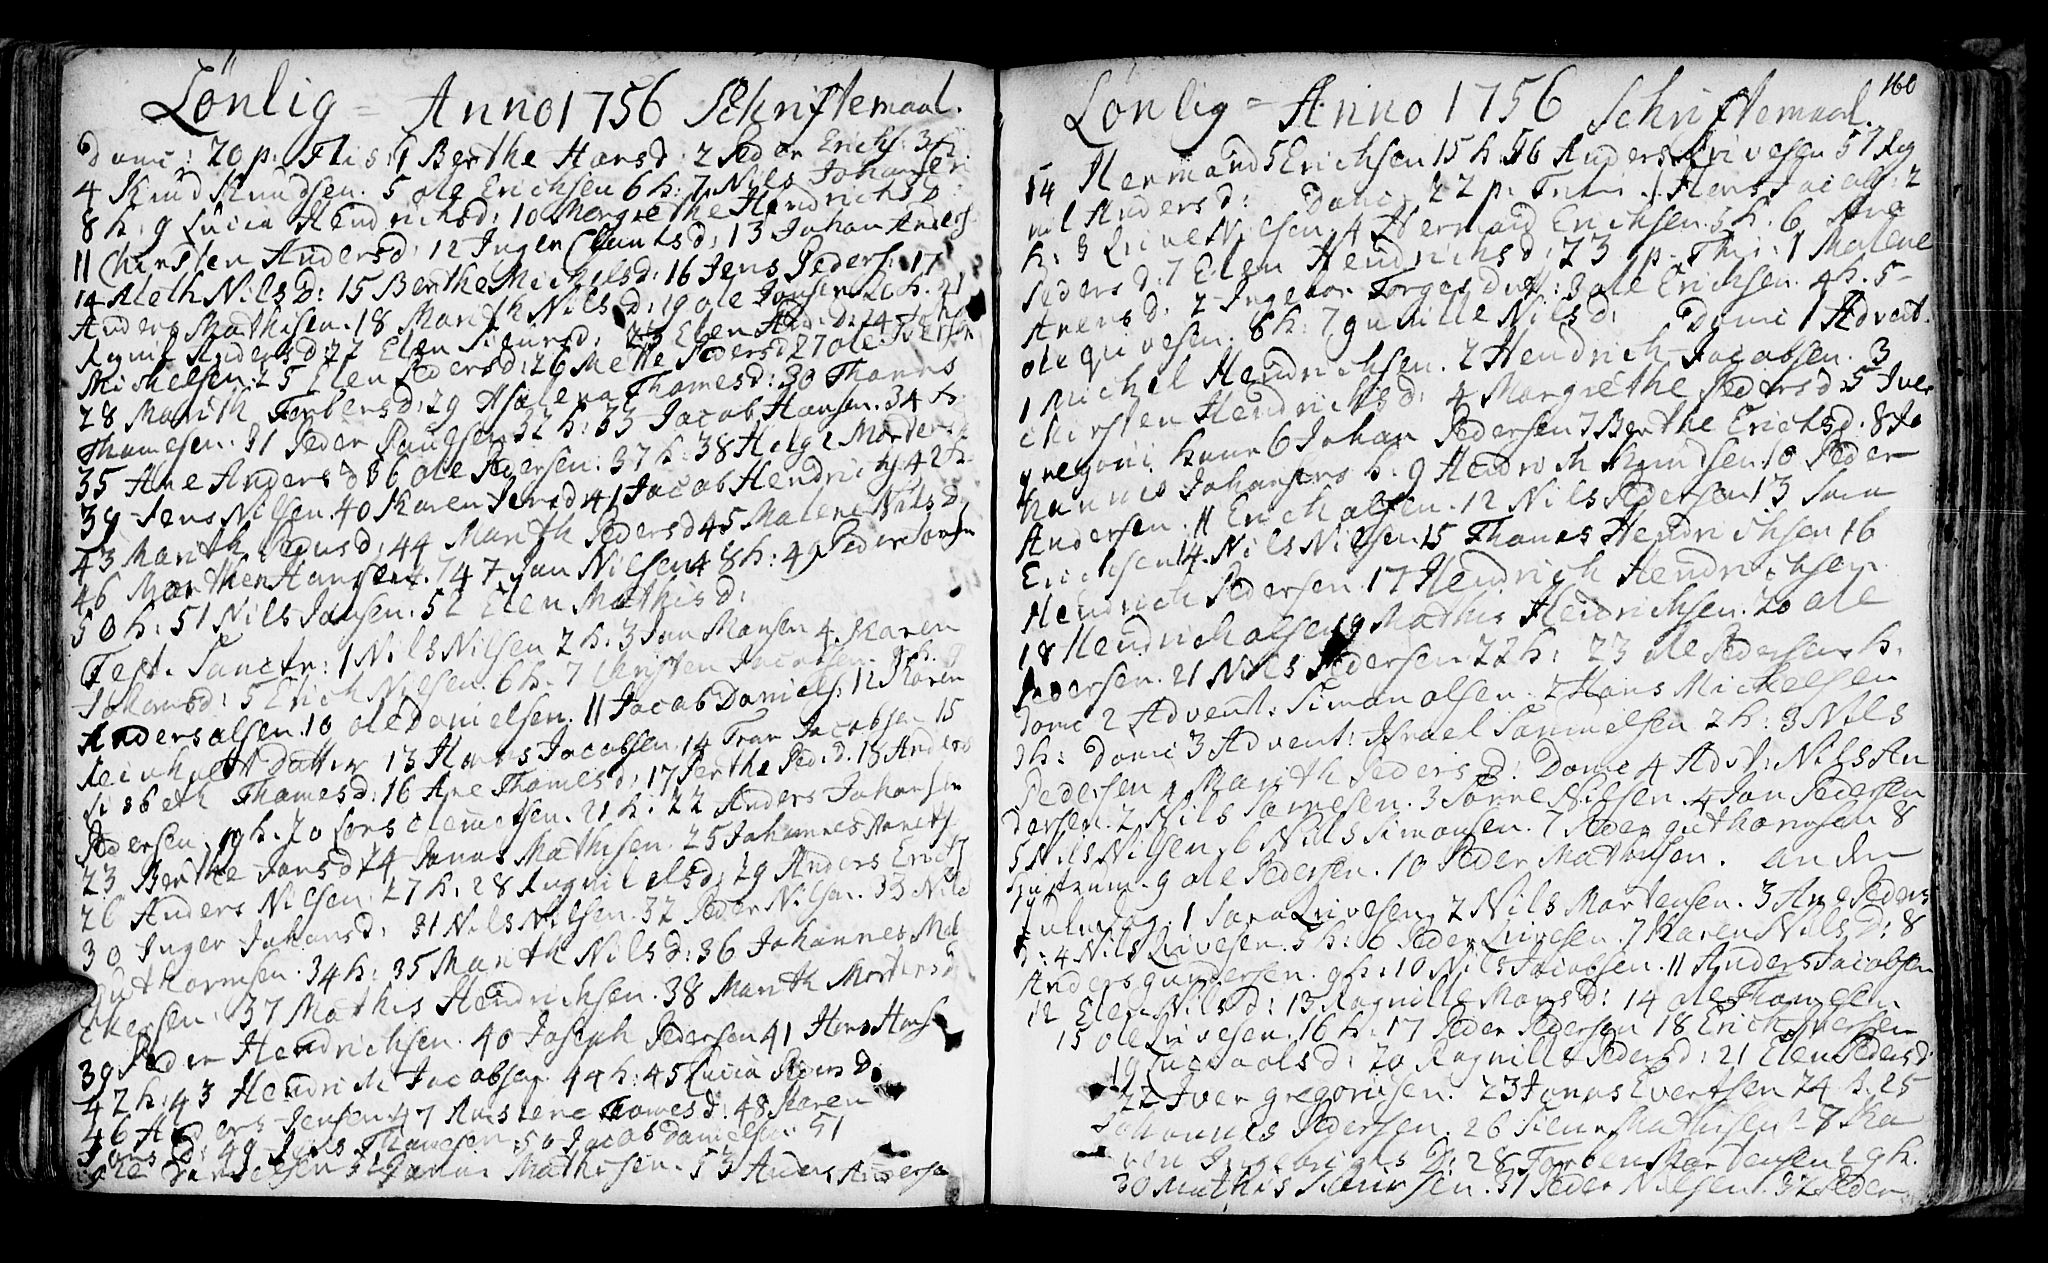 Lönlig = Anno 1756 Schriftemaal.
Domi: 20 p. Tris: 1 Berthe Hansd: 2 Peder Erichs: 3 h:
4 Knud Knudsen. 5 ole Erichsen 6 h: 7 Nils Johansen
8 h: 9 Lucia Hendrichsd: 10 Margrethe Hendrichsd:
11 Chirsten Andersd: 12 Inger 13 Johan Anders
14 Aleth Nilsd: 15 Berthe Michelsd: 16 Jens Peders: 17
Anders Mathisen. 18 Marith Nilsd: 19 ole Jonsen 20 h. 21
Andersd: 22 Elen 23 Elen And: D: 24
Mickelsen. 25 Elen Pedersd: 26 Mette Pedersd 27 ole Iversen
28 Marith Torbersd: 29 Thomesd: 30 Thomes
Thomesen. 31 Peder Poulsen 32 h: 33 Jacob Hansen. 34 h
35 Ane Andersd 36 ole Pedersen. 37 h: 38 Helge Mortens
39 Jens Nilsen. 40 Karen Jensd 41 Jacob Hendrichs 42 h
43 Marith Pedersd: 44 Marith Pedersd 45 Malene Nilsd:
46 Morthen Hansen. 47 Jon Nilsen 48 h: 49 Peder Jonsen
50 h: 51 Nils Jonsen. 52 Elen Mathisd:
Fest. Sanctr: 1 Nils Nilsen 2 h. 3 Jon Monsen 4 Karen
Johansd: 5 Erich Nilsen. 6 h. 7 Christen Jacobsen. 8 h. 9
Anders olsen. 10 ole Danielsen. 11 Jacob Daniels: 12 Karen
Reinholt Datter 13 Hans Jacobsen. 14 Jacobsen 15
Lisbeth Thomesd: 16 Ane Thomesd: 17 Berthe Ped: D. 18 Anders
Pedersen. 19 h. 20 Lars Clemetsen. 21 h. 22 Anders Johansen
23 Berthe Jonsd 24 Jonas Mathisen. 25 Johannes
26 Anders Nilsen. 27 h. 28 Ragnil olsd: 29 Anders Erichs
30 Inger Johansd: 31 Nils Nilsen. 32 Peder Nilsen. 33 Nils
Guthormsen. 34 h: 35 Marith Nilsd: 36 Johannes
37 Mathis Hendrichsen. 38 Marith Mortensd
39 Peder Hendrichsen. 40 Joseph Pedersen 41 Hans Hans
42 h: 43 Hendrich Jacobsen. 44 h: 45 Lucia Peders D:
46 Anders Jensen 47 Thomesd: 48 Karen
Jonsd: 49 Jens Thomesen: 50 Jacob Danielsen 51
ole Danielsen 52 Mathisen. 53 Anders Andersen
160
Lönlig = Anno 1756 Schriftemaal.
14 Hermand Erichsen 15 h: 16 Anders 17 Rag
nil Andersd: Domi: 22 p. Trin: 1 Hans Jacobs: 2
h: 3 Nilsen. 4 Hermand Erichsen. 5 h. 6 Ane
Pedersd: 7 Elen Hendrichsd: 23 p. Tri: 1 Malene
Arensd: 2 Ingebor Torgesd: 3 ole Erichsen. 4 h. 5
ole 6 h: 7 gunille Nilsd: Domi 1 Advent.
1 Michel Hendrichsen. 2 Hendrich Jacobsen. 3
Chirsten Hendrichsd: 4 Margrethe Pedersd: 5 Iver
gregori 6 Johan Pedersen 7 Berthe Erichsd. 8 Jo
hannes Johansens h: 9 Hendrich Knudsen 10 Peder
Andersen. 11 Erich olsen. 12 Nils Pedersen 13
Erichsen 14. Nils Nilsen. 15 Thomes Hendrichsen 16
Hendrich Pedersen. 17 Hendrich Hendrichsen.
18 Hendrich olsen 19 Mathis Hendrichsen. 20 ole
Pedersen. 21 Nils Pedersen 22 h: 23 ole Pedersens h.
Domi 2 Advent: Simon olsen. 2 Hans Mickelsen
3 h: Domi 3 Advent: Israel Sammelsen 2 h: 3 Nils
Pedersen 4 Marith Pedersd: Domi 4 Advt: Nils An
dersen. 2 Nils 3 Nilsen. 4 Jon Pedersen
5 Nils Nilsen. 6 Nils Simonsen. 7 Peder guthormsen 8
9 ole Pedersen. 10 Peder Mathisen. anden
Juledag. 1 2 Nils Mortensen. 3 Ane Peders
d: 4 Nils 5 h: 6 Peder 7 Karen Nils D: 8
Anders gundersen. 9 h: 10 Nils Jacobsen. 11 Anders Jacobsen
12 Elen Nilsd: 13 Ragnille Monsd: 14 ole Thomesen
15 ole 16 h: 17 Peder Pedersen 18 Erich Iversen
19 Lucia olsd: 20 Ragnille Pedersd: 21 Elen Pedersd:
22 Iver gregorisen. 23 Jonas Evertsen 24 h. 25
Johannes Pedersen. 26 Mathisen 27 Ka
ren Ingebrigts D: 28 Torben Mortensen 29 h.
30 Mathis 31 Peder Nilsen. 32 Peder